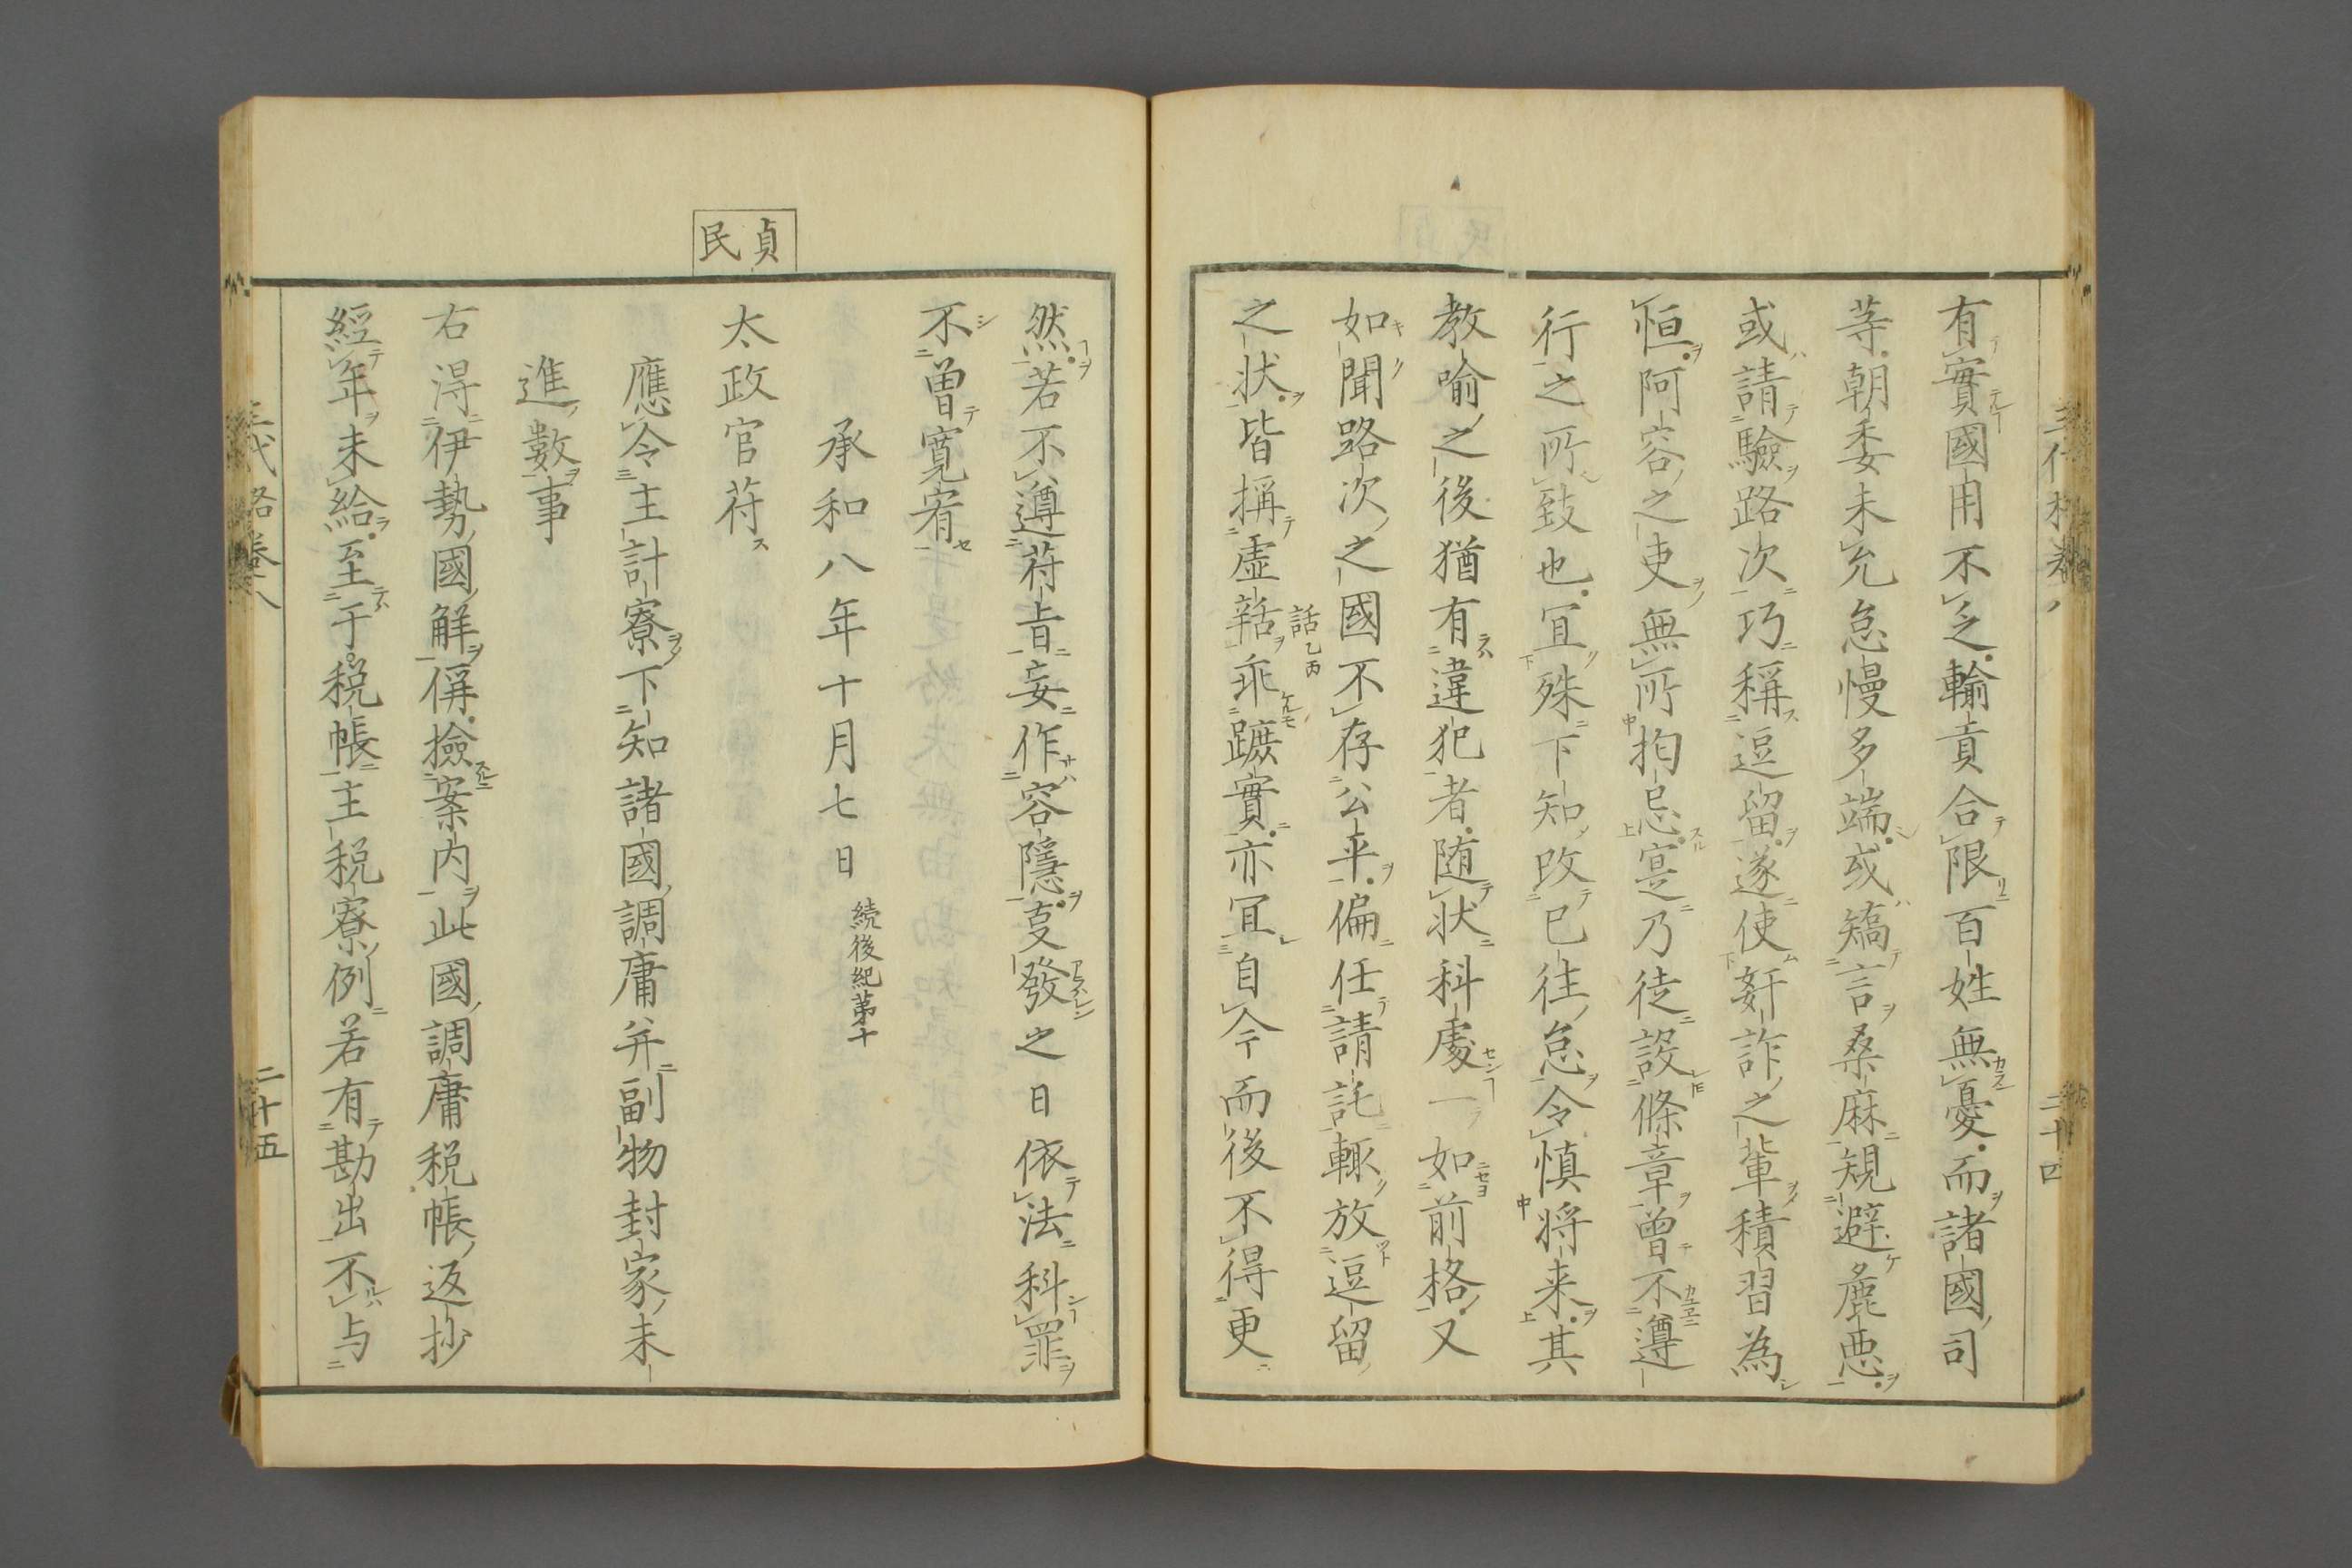 有實國用不乏輸貢合限百姓無憂而諸國司
等朝委未允怠慢多端或矯言桑麻規避麁悪
或請驗路次巧稱逗留遂使姧詐之輩積習為
恒阿容之吏無所拘忌寔乃徒設條章曾不遵
行之所致也冝殊下知改已往怠令慎将来其
教喻之後猶有違犯者随状科處一如前格又
如聞路次之國不存公平偏任請託輙放逗留
之状皆稱虚䛡乖蹠實亦冝自今而後不得更
話乙丙
三代格巻八
二十四
貞民
然若不遵苻旨妄作容隱叓發之日依法科罪
不曽寛宥
承和八年十月七日 続後紀第十
太政官苻
應令主計寮下知諸國調庸并副物封家未
進數事
右得伊勢國解偁撿案内此國調庸税帳返抄
經年未給至于税帳主税寮例若有勘出不与
三代格巻八
二十五